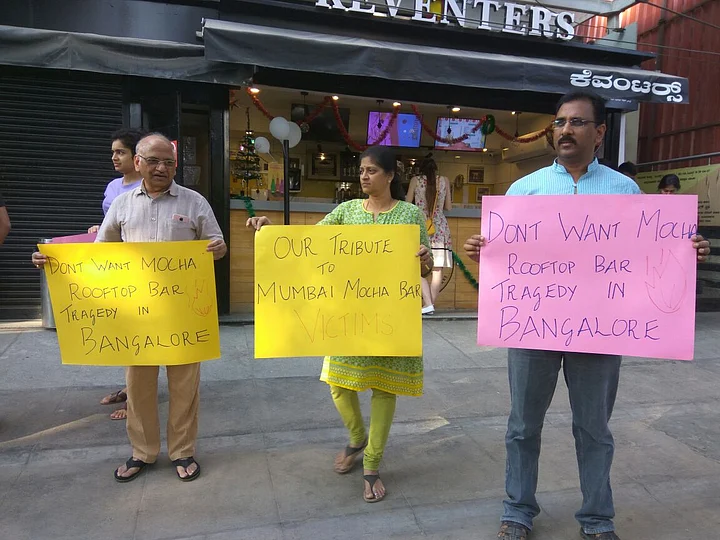 KEVENTERS
ಕೆವೆಂಟರ್ಸ್
DONT WANT MOCHA
ROOFTOP BAR
TRAGEDY IN
BANGALORE
OUR TRIBUTE
TO
MUMBAI MOCHA BAR
VICTIMS
DONT WANT MOCHA
ROOFTOP BAR
TRAGEDY IN
BANGALORE